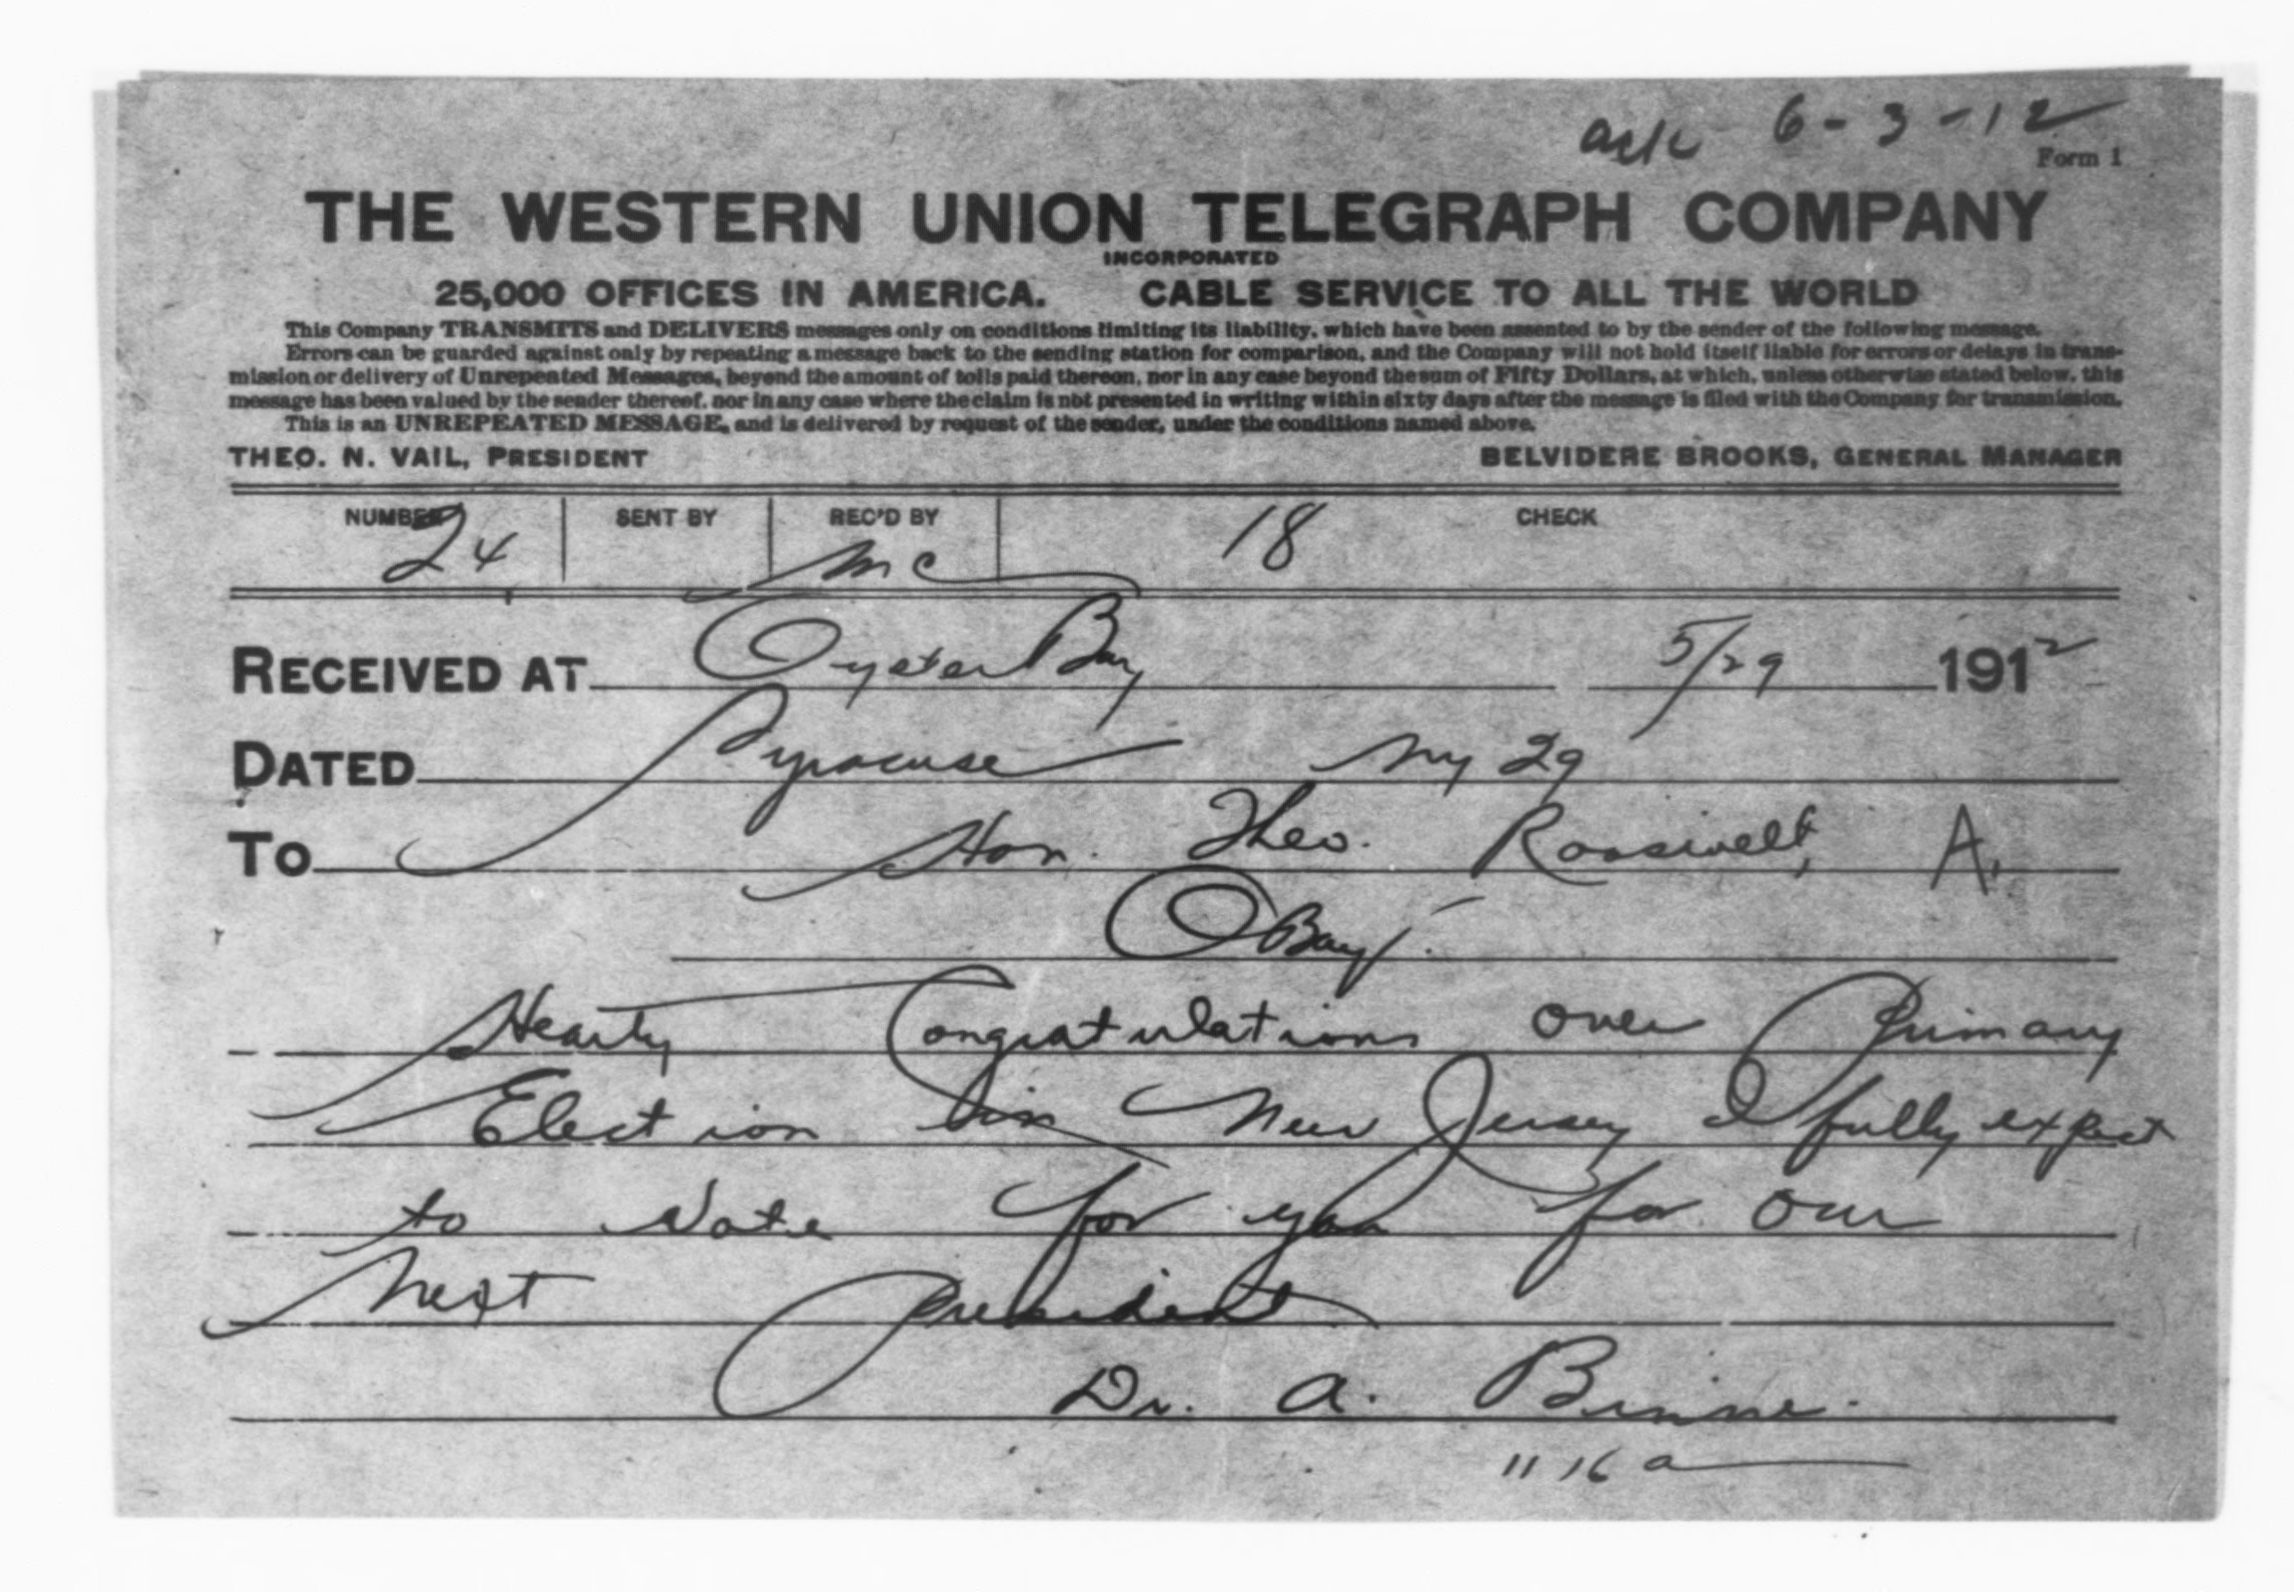 ack 6-3-12
Form 1
THE WESTERN UNION TELEGRAPH COMPANY
INCORPORATED
25,000 OFFICES IN AMERICA. CABLE SERVICE TO ALL THE WORLD
This Company TRANSMITS and DELIVERS messages only on conditions limiting its liability, which have been assented to by the sender of the following message.
Errors can be guarded against only by repeating a message back to the sending station for comparison, and the Company will not hold itself liable for errors or delays in trans-
mission or delivery of Unrepeated Messages, beyond the amount of tolls paid thereon, nor in any case beyond the sum of Fifty Dollars, at which, unless otherwise stated below, this
message has been valued by the sender thereof, nor in any case where the claim is not presented in writing within sixty days after the message is filed with the Company for transmission.
This is an UNREPEATED MESSAGE, and is delivered by request of the sender, under the conditions named above.
THEO. N. VAIL, PRESIDENT BELVIDERE BROOKS, GENERAL MANAGER
NUMBER SENT BY REC'D BY CHECK
24 mc 18
RECEIVED AT Oyster Bay 5/29 1912
DATED Syracuse Ny 29
To Hon. Theo. Roosevelt, A.
O Bay.
Hearty Congratulations over Primary
Election in New Jersey I fully expect
to Vote for you for our
Next President
Dr. A.
11 16 a